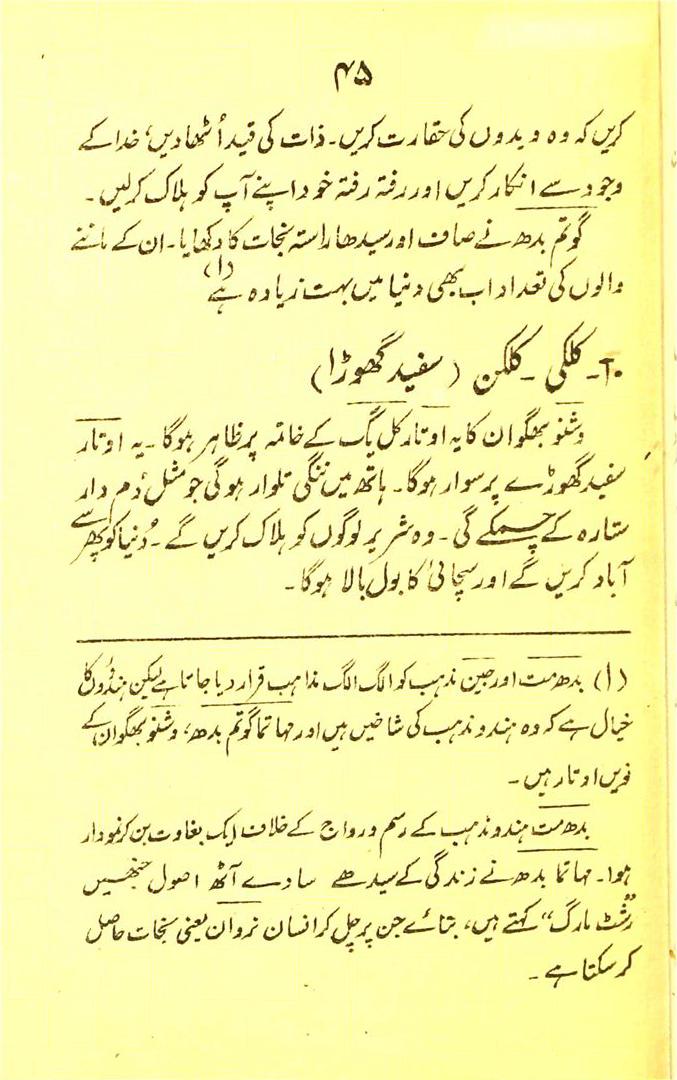 ۴۵
کریں کہ وہ ویدوں کی حقارت کریں۔ ذات کی قید اُٹھادیں، خدا کے
وجود سے انکار کریں اور رفتہ رفتہ خود اپنے آپ کو ہلاک کرلیں۔
گوتم بدھ نے صاف اور سیدھا راستہ نجات کا دکھایا۔ ان کے ماننے
والوں کی تعداد اب بھی دنیا میں بہت زیادہ ہے (۱)
۱۰۔ کلکی ۔ کلکن (سفید گھوڑا)
وشنو بھگوان کا یہ اوتار کل یگ کے خاتمہ پر ظاہر ہوگا ۔ یہ اوتار
سفید گھوڑے پر سوار ہوگا۔ ہاتھ میں ننگی تلوار ہوگی جو مثل دُم دار
ستارہ کے چمکے گی۔ وہ شریر لوگوں کو ہلاک کریں گے ۔ دُنیا کو پھر سے
آباد کریں گے اور سچائی کا بول بالا ہوگا۔
(۱) بدھ مت اور جین مذہب کو الگ الگ مذاہب قرار دیا جاتا ہے لیکن ہندوُں کا
خیال ہے کہ وہ ہندو مذہب کی شاخیں ہیں اور مہاتما گوتم بدھ، وشنو بھگوان کے
نویں اوتار ہیں۔
بدھ مت ہندو مذہب کے رسم و رواج کے خلاف ایک بغاوت بن کر نمودار
ہوا۔ مہاتما بدھ نے زندگی کے سیدھے سادے آٹھ اصول جنھیں
مارگ“ کہتے ہیں، بتائے جن پر چل کر انسان نروان یعنی نجات حاصل
کر سکتا ہے ۔